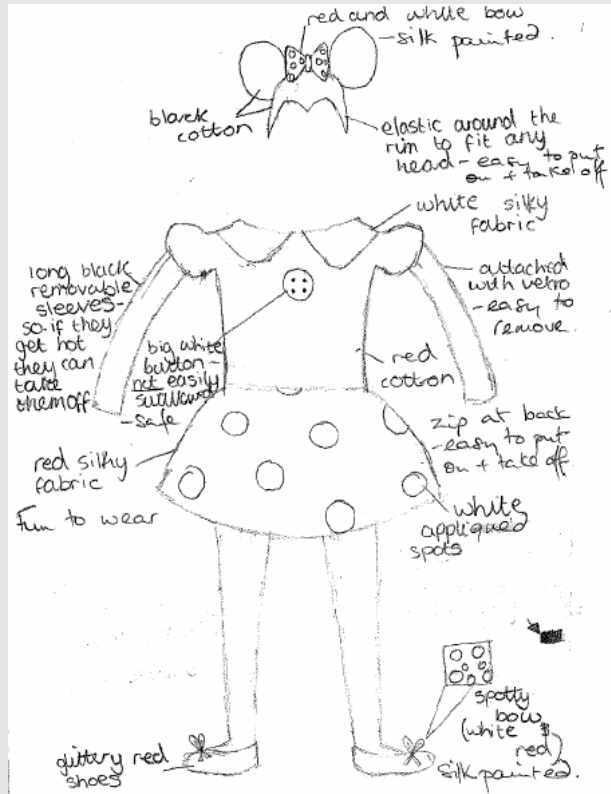 red and white bow
silk painted.
black
cotton
elastic around the
rim to fit any
head - easy to put
on + take off
white silky
fabric
long black
removable
sleeves-
so if they
get hot
they can
take
them off
attached
with velro
-easy to
remove.
big white
button -
not easily
swallowed
- safe
red
cotton
zip at back
-easy to put
on + take off
red silky
fabric
Fun to wear
white
appliqued
spots
spotty
bow
(white &
red)
silk painted.
glittery red
shoes